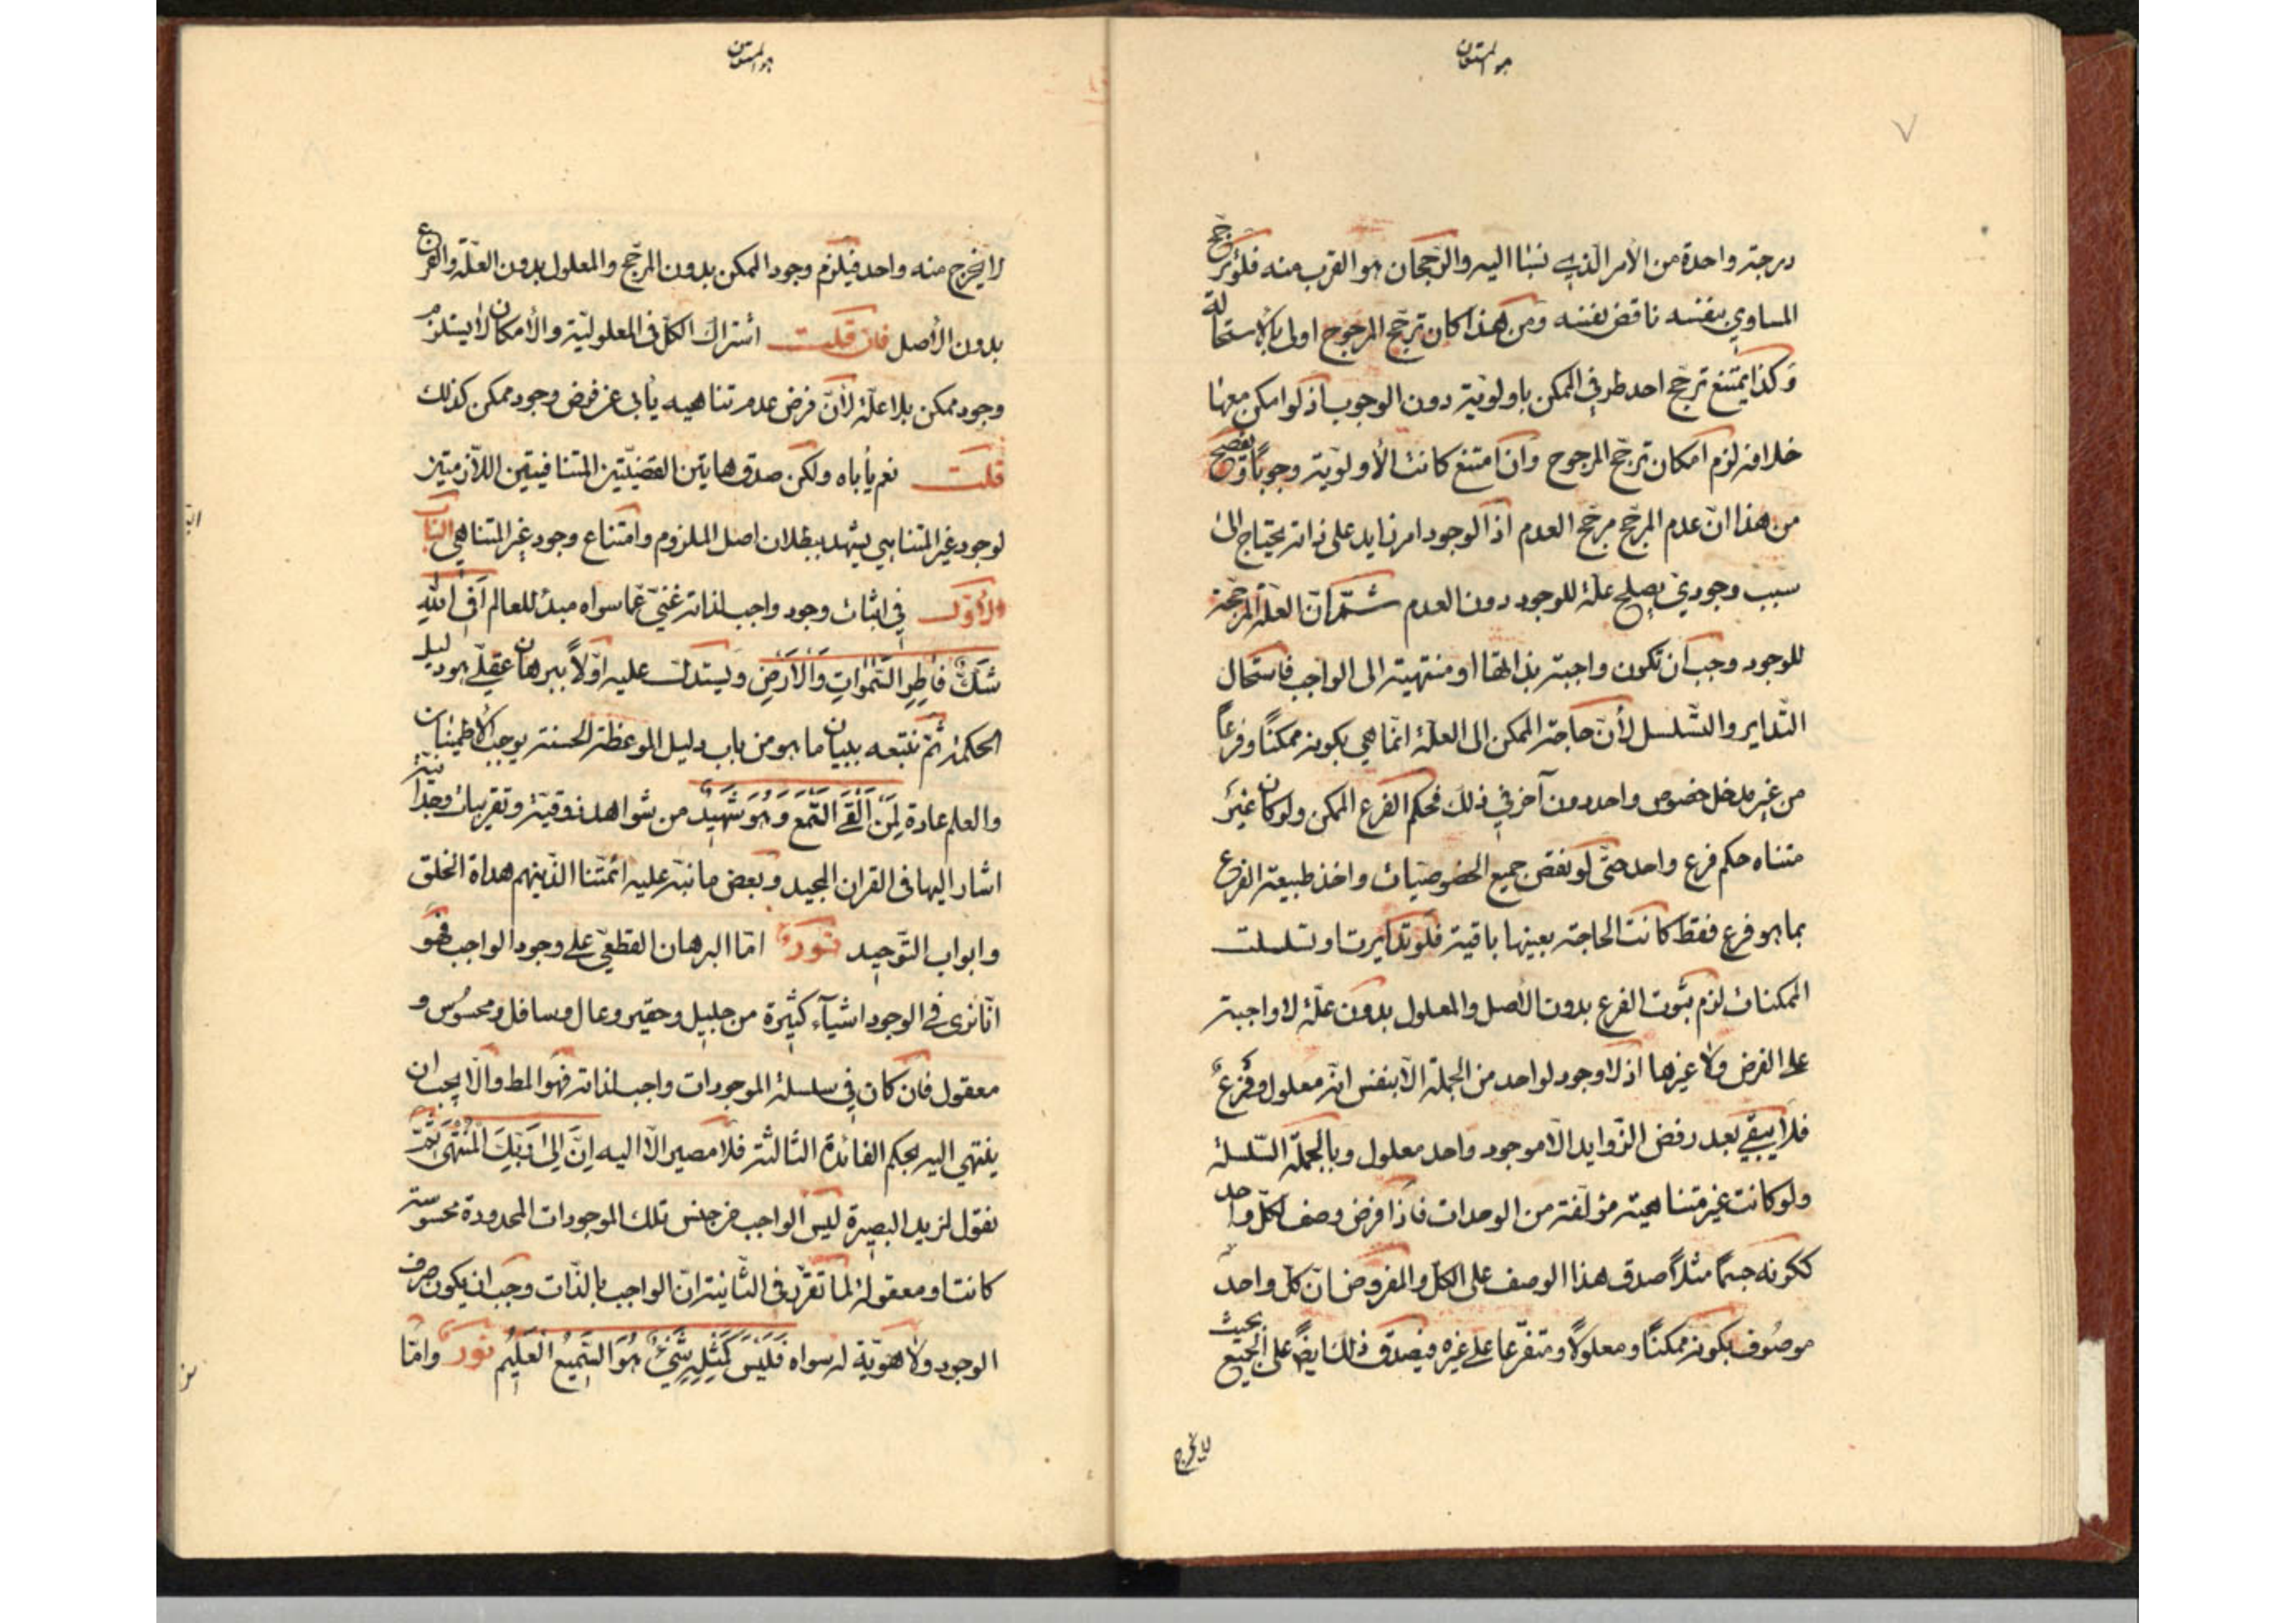 هو المستعان
درجة واحدة من الأمر الذي نسبا اليه والرجحان هو القرب منه فلو ترجح
المساوي بنفسه ناقض نفسه ومن هذا كان ترجح المرجوح اولى بالاستحالة
وكذا يمتنع ترجح احد طرفي الممكن باولوية دون الوجوب اذ لو امكن معها
خلافه لزم امكان ترجح المرجوح وان امتنع كانت الأولوية وجوباً
من هذا انّ عدم المرجح مرجح العدم اذ الوجود امر زايد على ذاته يحتاج الى
سبب وجودي يصلح علة للوجود دون العدم ثمّ انّ العلة المرجحة
للوجود وجب ان تكون واجبة بذاتها او منتهية الى الواجب فاستحال
التداير والتسلسل لأنّ حاجة الممكن الى العلة انما هي بكونه ممكناً وفرعاً
من غير مدخل خصوص واحد دون آخر في ذلك فحكم الفرع الممكن ولو كان غير
متناه حكم فرع واحد حتى لو نقض جميع الخصوصيات واخذ طبيعة الفرع
بما هو فرع فقط كانت الحاجة بعينها باقية فلو تدايرت او تسلسلت
الممكنات لزم ثبوت الفرع بدون الأصل والمعلول بدون علة لا واجبة
على الفرض ولا غيرها اذ لا وجود لواحد من الجملة الا بنفس انه معلول وفرع
فلا يبقى بعد رفض الزوايد الا موجود واحد معلول وبالجملة السلسلة
ولو كانت غير متناهية مؤلفة من الوحدات فاذا فرض وصف لكل واحد
ككونه جسماً مثلاً صدق هذا الوصف على الكل والمفروض ان كل واحد
موصوف بكونه ممكناً ومعلولاً ومتفرعا على غيره فيصدق ذلك ايضً على الجميع بحيث
لا يخرج
هو المستعان
لا يخرج منه واحد فيلزم وجود الممكن بدون المرجح والمعلول بدون العلة والفرع
بدون الأصل فان قلت اشتراك الكل في المعلولية والأمكان لا يستلزم
وجود ممكن بلا علة لأنّ فرض عدم تناهيه يأبى عن فرض وجود ممكن كذلك
قلت نعم يأباه ولكن صدق هاتين القضيتين المتنافيتين اللازمتين
لوجود غير المتناهي يشهد ببطلان اصل الملزوم وامتناع وجود غير المتناهي الباب
الأول في اثبات وجود واجب لذاته غني عما سواه مبدء للعالم أفي الله
شك فاطر السموات والأرض ويستدل عليه اولاً ببرهان عقلي هو دليل
الحكمة ثم نتبعه ببيان ما هو من باب دليل الموعظة الحسنة يوجب الأطمينان
والعلم عادة لمن ألقى السمع وهو شهيد من شواهد ذوقية وتقريبات وجدانية
اشار اليها في القران المجيد وبعض ما نبه عليه ائمتنا الذينهم هداة الخلق
وابواب التوحيد نور اما البرهان القطعي على وجود الواجب فهو
انا نرى في الوجود اشياء كثيرة من جليل وحقير وعال وسافل ومحسوس و
معقول فان كان في سلسلة الموجودات واجب لذاته فهو المط والا يجب ان
ينتهي اليه بحكم الفائدة الثالثة فلا مصير الا اليه إنّ إلى ربك المنتهى ثم
نقول لمزيد البصيرة ليس الواجب من جنس تلك الموجودات المحدودة محسوسة
كانت او معقولة لما تقرر في الثانية ان الواجب بالذات وجب ان يكون صرف
الوجود ولا هوية له سواه فليس كمثله شيء هو السميع العليم نور واما